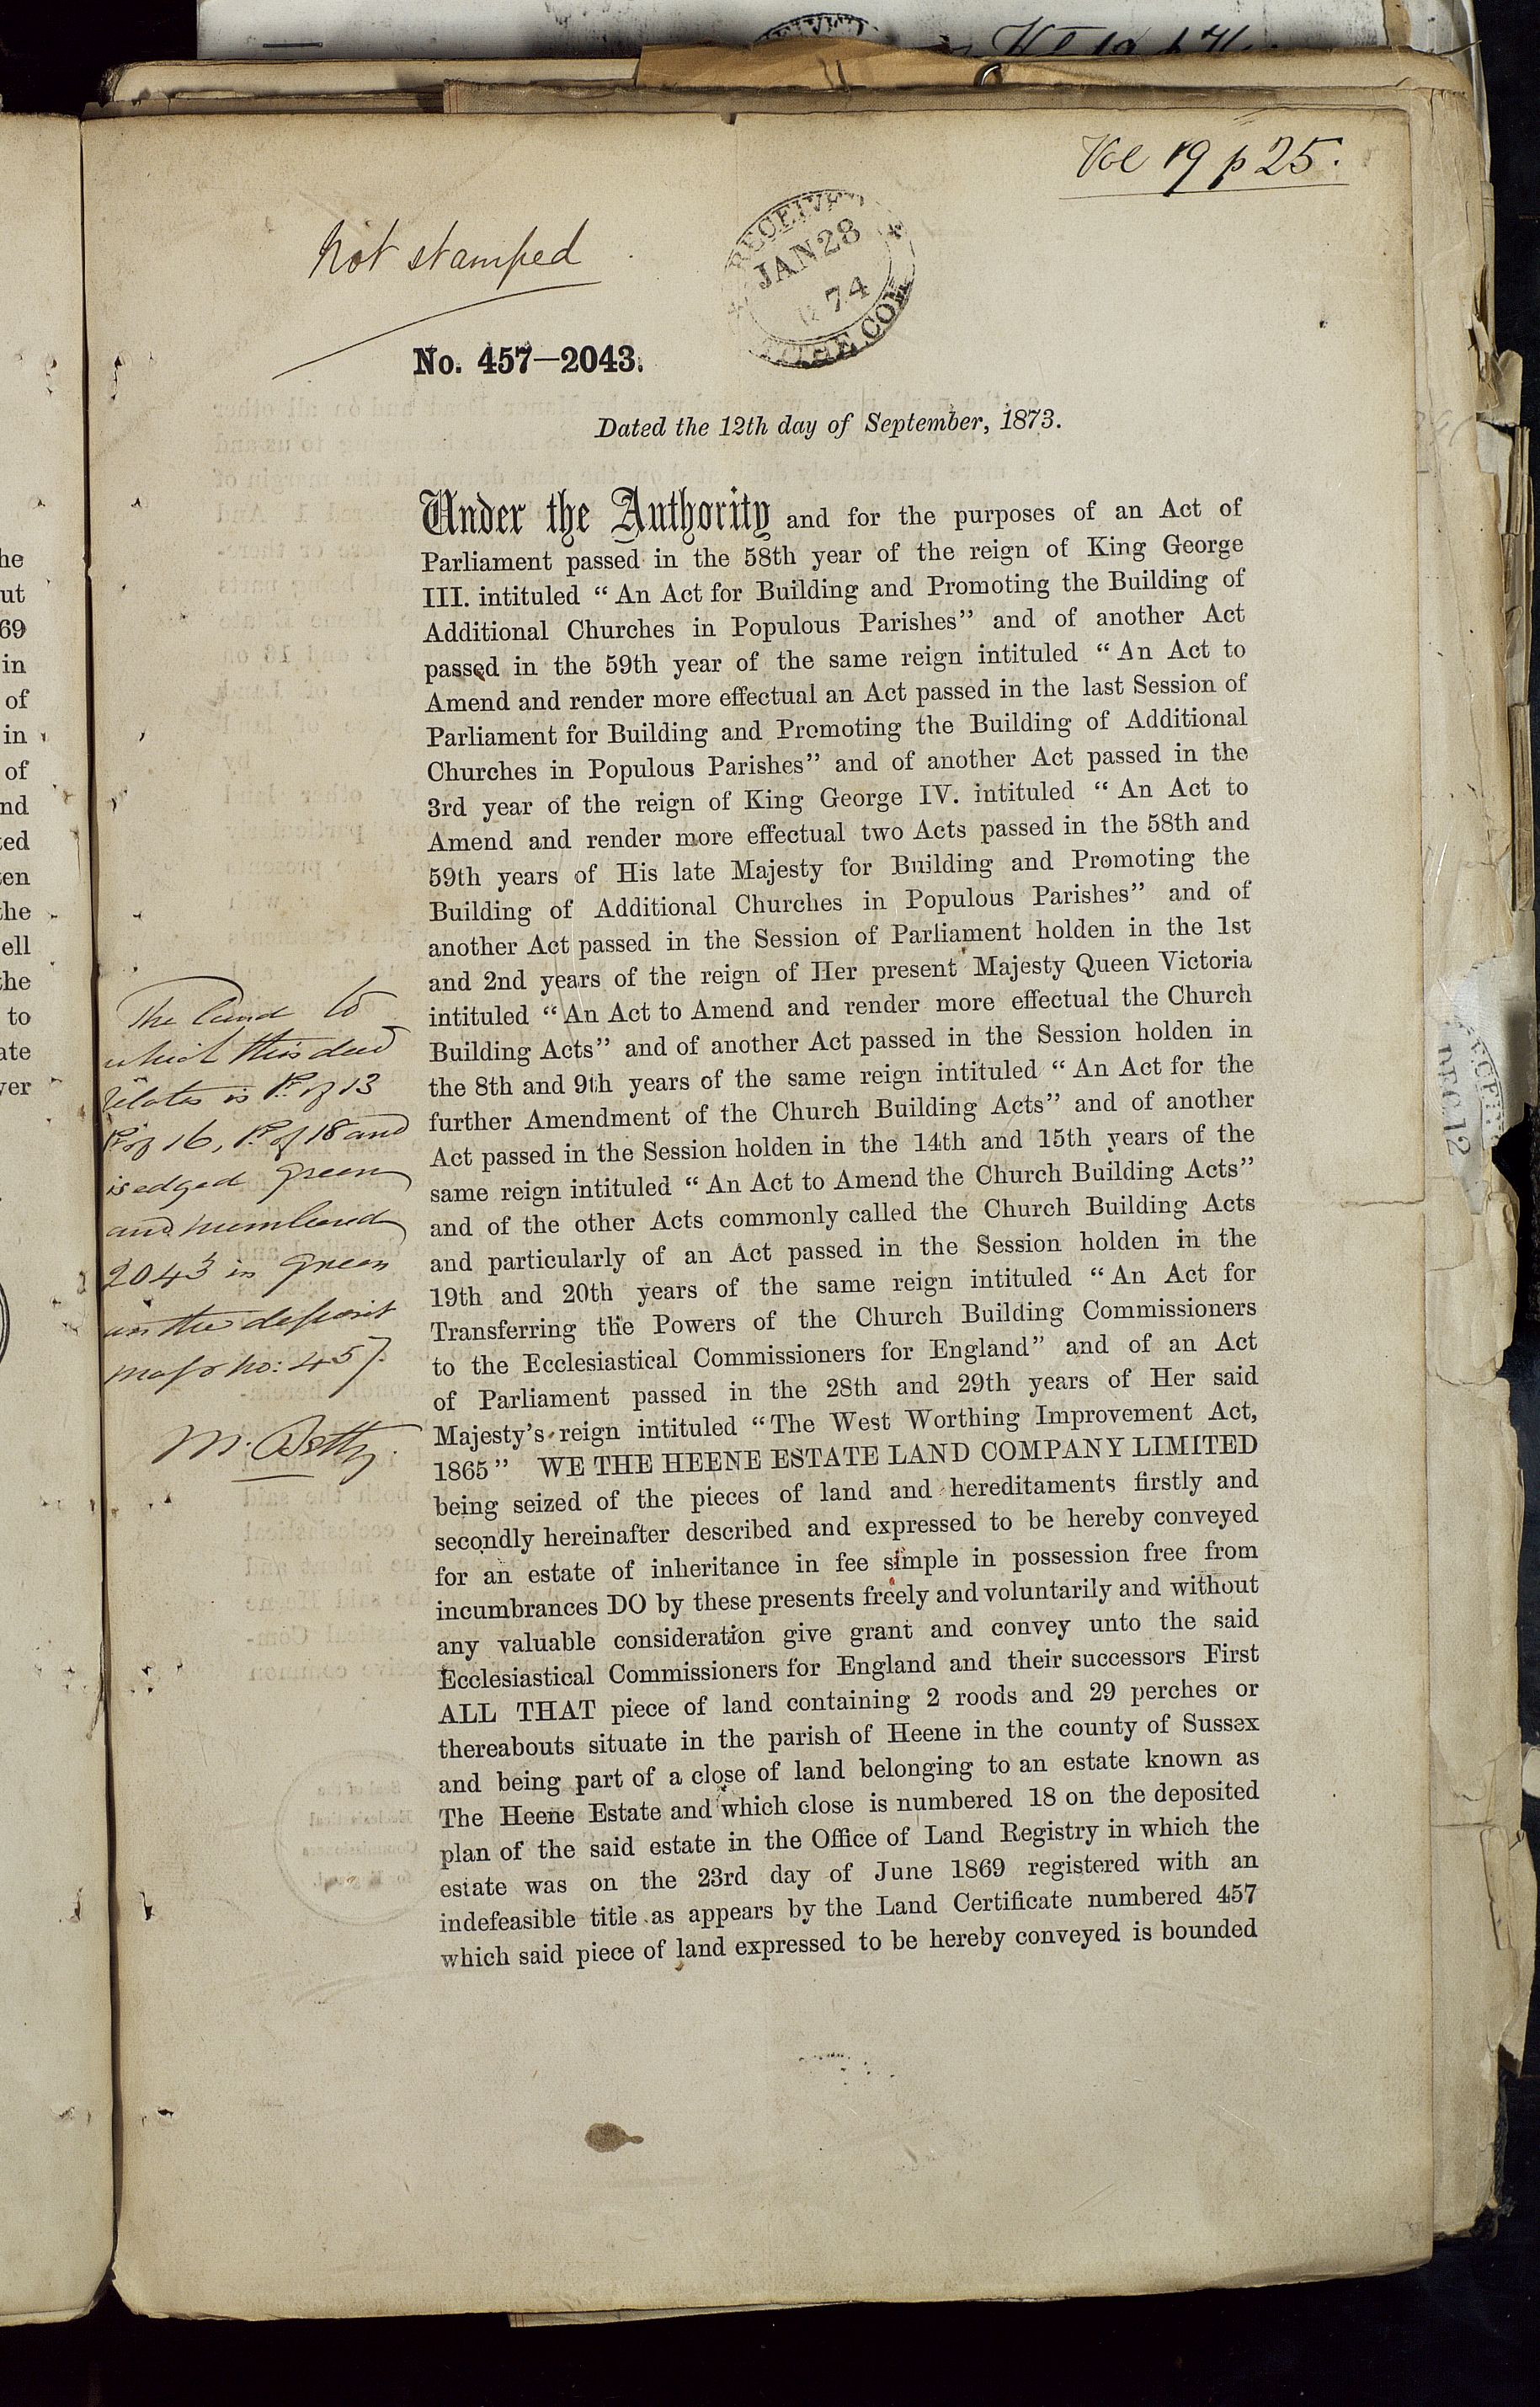 Vol 19 p 25.
Not stamped
RECEIVED
JAN 28
74
No. 457—2043.
Dated the 12th day of September, 1873.
Under the Authority and for the purposes of an Act of
Parliament passed in the 58th year of the reign of King George
III. intituled “An Act for Building and Promoting the Building of
Additional Churches in Populous Parishes” and of another Act
passed in the 59th year of the same reign intituled “An Act to
Amend and render more effectual an Act passed in the last Session of
Parliament for Building and Promoting the Building of Additional
Churches in Populous Parishes” and of another Act passed in the
3rd year of the reign of King George IV. intituled “An Act to
Amend and render more effectual two Acts passed in the 58th and
59th years of His late Majesty for Building and Promoting the
Building of Additional Churches in Populous Parishes” and of
another Act passed in the Session of Parliament holden in the 1st
and 2nd years of the reign of Her present Majesty Queen Victoria
intituled “An Act to Amend and render more effectual the Church
Building Acts” and of another Act passed in the Session holden in
the 8th and 9th years of the same reign intituled “An Act for the
further Amendment of the Church Building Acts” and of another
Act passed in the Session holden in the 14th and 15th years of the
same reign intituled “An Act to Amend the Church Building Acts”
and of the other Acts commonly called the Church Building Acts
and particularly of an Act passed in the Session holden in the
19th and 20th years of the same reign intituled “An Act for
Transferring the Powers of the Church Building Commissioners
to the Ecclesiastical Commissioners for England” and of an Act
of Parliament passed in the 28th and 29th years of Her said
Majesty’s reign intituled “The West Worthing Improvement Act,
1865” WE THE HEENE ESTATE LAND COMPANY LIMITED
being seized of the pieces of land and hereditaments firstly and
secondly hereinafter described and expressed to be hereby conveyed
for an estate of inheritance in fee simple in possession free from
incumbrances DO by these presents freely and voluntarily and without
any valuable consideration give grant and convey unto the said
Ecclesiastical Commissioners for England and their successors First
ALL THAT piece of land containing 2 roods and 29 perches or
thereabouts situate in the parish of Heene in the county of Sussex
and being part of a close of land belonging to an estate known as
The Heene Estate and which close is numbered 18 on the deposited
plan of the said estate in the Office of Land Registry in which the
estate was on the 23rd day of June 1869 registered with an
indefeasible title as appears by the Land Certificate numbered 457
which said piece of land expressed to be hereby conveyed is bounded
The land to
which this deed
relates is Pt of 13
Pt of 16, Pt of 18 and
is edged green
and numbered
2043 in green
on the deposit
map no: 457.